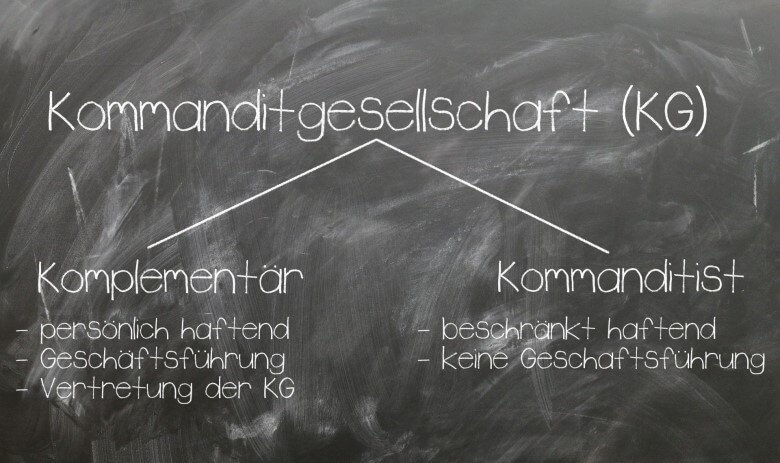 Kommanditgesellschaft (KG)
Komplementär
- persönlich haftend
- Geschäftsführung
- Vertretung der KG
Kommanditist
- beschränkt haftend
- keine Geschaftsführung